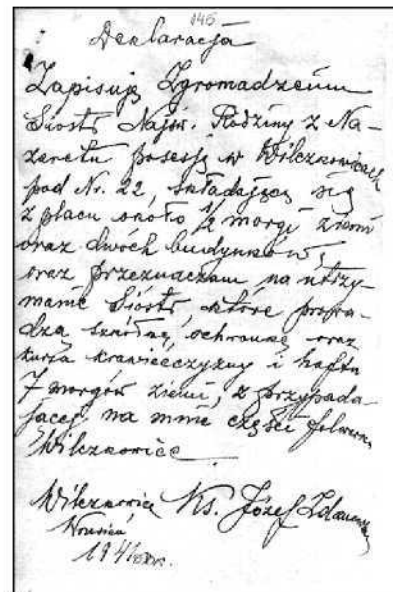 145
Deklaracja
Zapisuję Zgromadzeniu
Sióstr Najśw. Rodziny z Na-
zaretu posesję w Wilczkowicach
pod Nr. 22, składającą się
z placu około 1/2 morgi ziemi
oraz dwóch budynków,
oraz przeznaczam na utrzy-
manie Sióstr, które prowa-
dzą szkółkę, ochronkę oraz
kursa krawieczyzny i haftu
7 morgów ziemi, z przypada-
jącej na mnie części folwarku
Wilczkowice
Wilczkowice Ks. Józef
1941